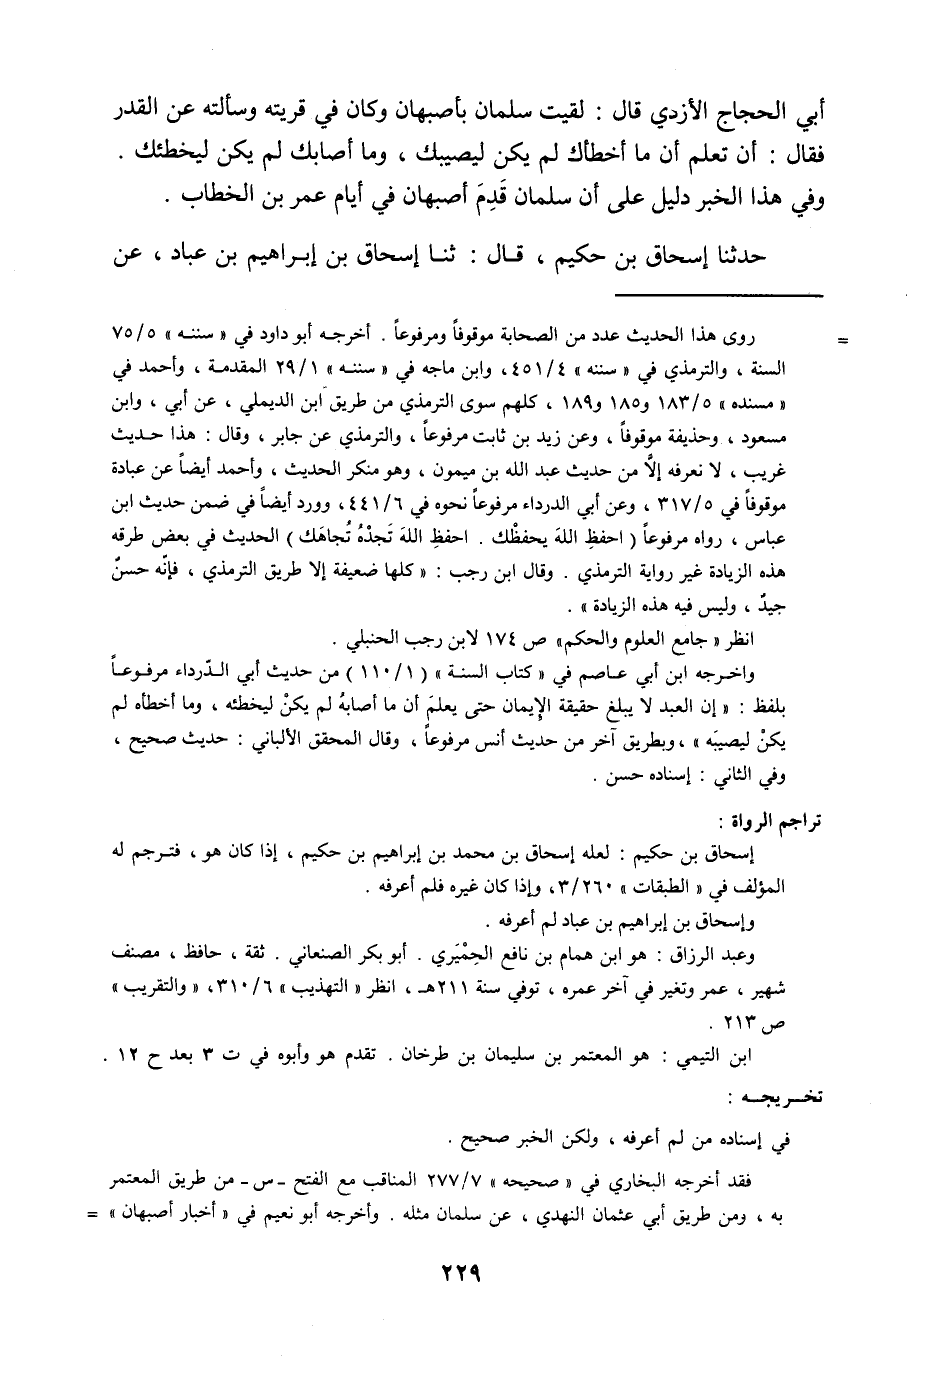 أبي الحجاج الأزدي قال : لقيت سلمان بأصبهان وكان في قريته وسألته عن القدر
فقال : أن تعلم أن ما أخطأك لم يكن ليصيبك ، وما أصابك لم يكن ليخطئك .
وفي هذا الخبر دليل على أن سلمان قَدِمَ أصبهان في أيام عمر بن الخطاب .
حدثنا إسحاق بن حكيم ، قـال : ثنـا إسحاق بن إبـراهيم بن عباد ، عن
= روى هذا الحديث عدد من الصحابة موقوفاً ومرفوعاً . أخرجـه أبو داود في « سننـه » ٧٥/٥
السنة ، والترمذي في « سننه » ٤٥١/٤، وابن ماجه في « سننـه » ٢٩/١ المقدمـة ، وأحمد في
« مسنده » ١٨٣/٥ و١٨٥ و١٨٩ ، كلهم سوى الترمذي من طريق ابن الديملي ، عن أبي ، وابن
مسعود ، وحذيفة موقوفاً ، وعن زيد بن ثابت مرفوعاً ، والترمذي عن جابر ، وقال : هذا حـديث
غريب ، لا نعرفه إلَّا من حديث عبد الله بن ميمون ، وهو منكر الحديث ، وأحمد أيضاً عن عبادة
موقوفاً في ٣١٧/٥ ، وعن أبي الدرداء مرفوعاً نحوه في ٤٤١/٦، وورد أيضاً في ضمن حديث ابن
عباس ، رواه مرفوعاً ( احفظِ اللهَ يحفظْك . احفظِ اللهَ تَجدْهُ تُجاهَك ) الحديث في بعض طرقه
هذه الزيادة غير رواية الترمذي . وقال ابن رجب : « كلها ضعيفة إلا طريق الترمذي ، فإنّه حسنٌ
جيدٌ ، وليس فيه هذه الزيادة » .
انظر « جامع العلوم والحكم» ص ١٧٤ لابن رجب الحنبلي .
واخـرجه ابن أبي عـاصم في « كتاب السنـة » ( ١١٠/١ ) من حديث أبي الـدّرداء مرفـوعـاً
بلفظ : « إن العبد لا يبلغ حقيقة الإيمان حتى يعلمَ أن ما أصابهُ لم يكنْ ليخطئه ، وما أخطأه لم
يكنْ ليصيبَه » ، وبطريق آخر من حديث أنس مرفوعاً ، وقال المحقق الألباني : حديث صحيح ،
وفي الثاني : إسناده حسن .
تراجم الرواة :
إسحاق بن حكيم : لعله إسحاق بن محمد بن إبراهيم بن حكيم ، إذا كان هو ، فتـرجم له
المؤلف في « الطبقات » ٣/٢٦٠، وإذا كان غيره فلم أعرفه .
وإسحاق بن إبراهيم بن عباد لم أعرفه .
وعبد الرزاق : هو ابن همام بن نافع الحِمْيَري . أبو بكر الصنعاني . ثقة ، حافظ ، مصنف
شهير ، عمر وتغير في آخر عمره ، توفي سنة ٢١١هـ ، انظر « التهذيب » ٣١٠/٦، « والتقريب »
ص ٢١٣ .
ابن التيمي : هو المعتمر بن سليمان بن طرخان . تقدم هو وأبوه في ت ٣ بعد ح ١٢ .
تخـريجـه :
في إسناده من لم أعرفه ، ولكن الخبر صحيح .
فقد أخرجه البخاري في « صحيحه » ٢٧٧/٧ المناقب مع الفتح ـ س ـ من طريق المعتمر
به ، ومن طريق أبي عثمان النهدي ، عن سلمان مثله . وأخرجه أبو نعيم في « أخبار أصبهان » =
٢٢٩